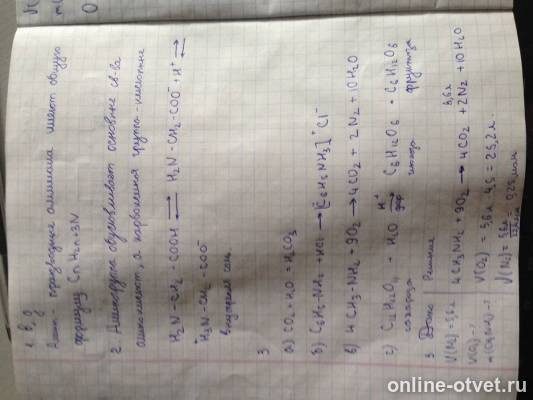 1. В, д
Амины - производные аммиака имеют общую
формулу CnH2n+3N
2. Аминогруппа обуславливает основные св-ва
аминокислот, а карбоксильная группа-кислотные
H2N - CH2 - COOH ⇄ H2N - CH2 - COO⁻ + H⁺ ⇄
⁺H3N - CH2 - COO⁻
внутренняя соль
3
а) CO2 + H2O = H2CO3
б) C6H5-NH2 + HCl → [C6H5NH3]⁺Cl⁻
в) 4CH3-NH2 + 9O2 → 4CO2 + 2N2 + 10H2O
г) C12H22O11 + H2O → C6H12O6 + C6H12O6
сахароза глюкоза фруктоза
3. Дано Решение
V(N2)=5,6л
5,6л
4CH3NH2 + 9O2 → 4CO2 + 2N2 + 10H2O
V(O2)-?
V(O2) = 5,6л · 4,5 = 25,2л.
V(N2) = 5,6л 0,25моль
online-otvet.ru